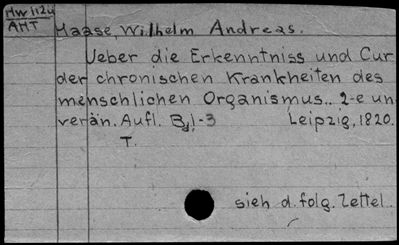 Hw 112u
AHT
Haase, Wilhelm Andreas.
Ueber die Erkenntniss und Cur
der chronischen Krankheiten des
menschlichen Organismus.. 2-e un-
verän. Aufl. Bd 1-3 Leipzig, 1820.
T.
sieh d. folg. Zettel.